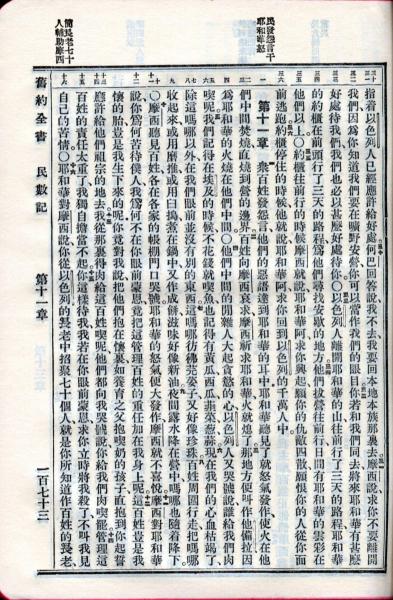 民發怨言干
耶和華怒
指着以色列人已經應許給好處何巴回答說我不去我要回本地本族那裏去摩西說求你不要離開
我們因爲你知道我們要在曠野安營你可以當作我們的眼目你若和我們同去將來耶和華有甚麼
好處待我們我們也必以甚麼好處待你○以色列人離開耶和華的山往前行了三天的路程耶和華
的約櫃在前頭行了三天的路程爲他們尋找安歇的地方他們拔營往前行日間有耶和華的雲彩在
他們以上○約櫃往前行的時候摩西就說耶和華阿求你興起願你的仇敵四散願恨你的人從你面
前逃跑約櫃停住的時候他就說耶和華阿求你回到以色列的千萬人中
第十一章 衆百姓發怨言他們的惡語達到耶和華的耳中耶和華聽見了就怒氣發作使火在他
們中間焚燒直燒到營的邊界百姓向摩西哀求摩西祈求耶和華火就熄了那地方便叫作他備拉因
爲耶和華的火燒在他們中間○他們中間的閒雜人大起貪慾的心以色列人又哭號說誰給我們肉
喫呢我們記得在埃及的時候不花錢就喫魚也記得有黃瓜西瓜韭菜蔥蒜現在我們的心血枯竭了
除這嗎嗎以外在我們眼前並沒有別的東西這嗎嗎彷彿芫荽子又好像珍珠百姓周圍行走把嗎嗎
收起來或用磨推或用臼搗煮在鍋中又作成餅滋味好像新油夜間露水降在營中嗎嗎也隨着降下
○摩西聽見百姓各在各家的帳棚門口哭號耶和華的怒氣便大發作摩西就不喜悅摩西對耶和華
說你爲何苦待僕人我爲何不在你眼前蒙恩竟把這管理百姓的重任加在我身上呢這百姓豈是我
懷的胎豈是我生下來的呢你竟對我說把他們抱在懷裏如養育之父抱喫奶的孩子直抱到你起誓
應許給他們祖宗的地去我從那裏得肉給這百姓喫呢他們都向我哭號說你給我們肉喫罷管理這
百姓的責任太重了我獨自擔當不起你這樣待我我若在你眼前蒙恩求你立時將我殺了不叫我見
自己的苦情○耶和華對摩西說你從以色列的長老中招聚七十個人就是你所知道作百姓的長老
簡民老七十
人輔助摩西
舊約全書 民數記 第十一章 一百七十三